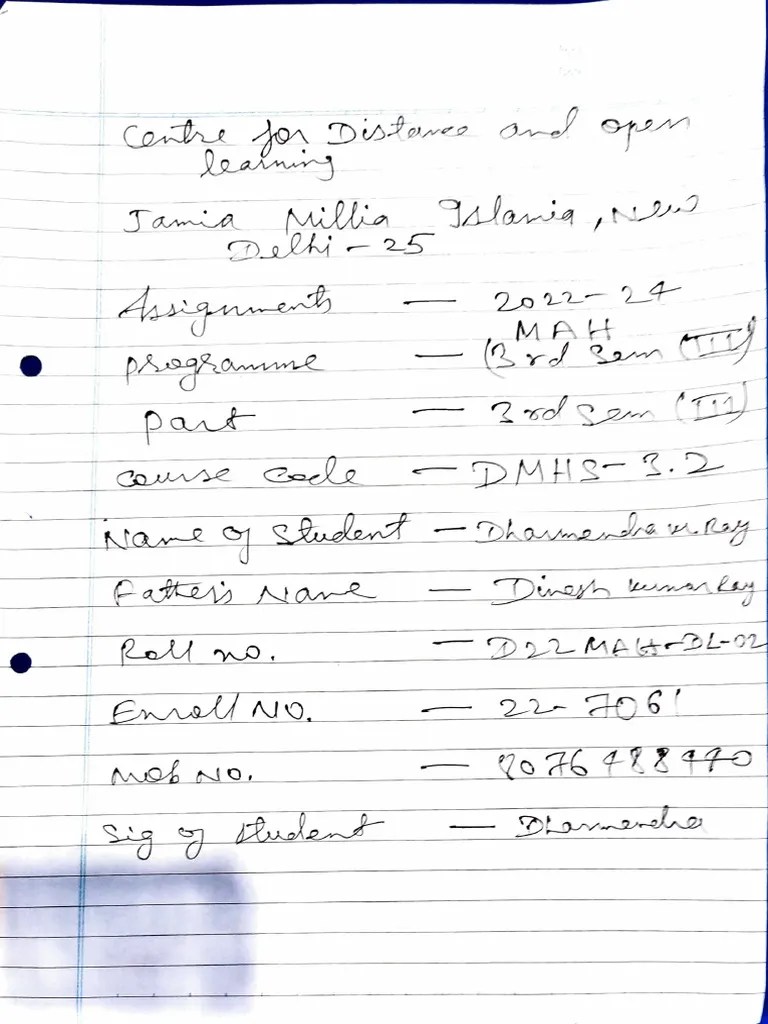 Centre for Distance and open
learning
Jamia Millia Islamia, New
Delhi - 25
Assignments — 2022-24
MAH
programme — (3rd Sem (III)
part — 3rd Sem (III)
course code — DMHS-3.2
Name of Student — Dharmendra Kr. Ray
Father's Name — Dinesh kumar Ray
Roll no. — D22MAH-DL-02
Enroll NO. — 22-7061
Mob NO. — 8076488440
Sig of student — Dharmendra